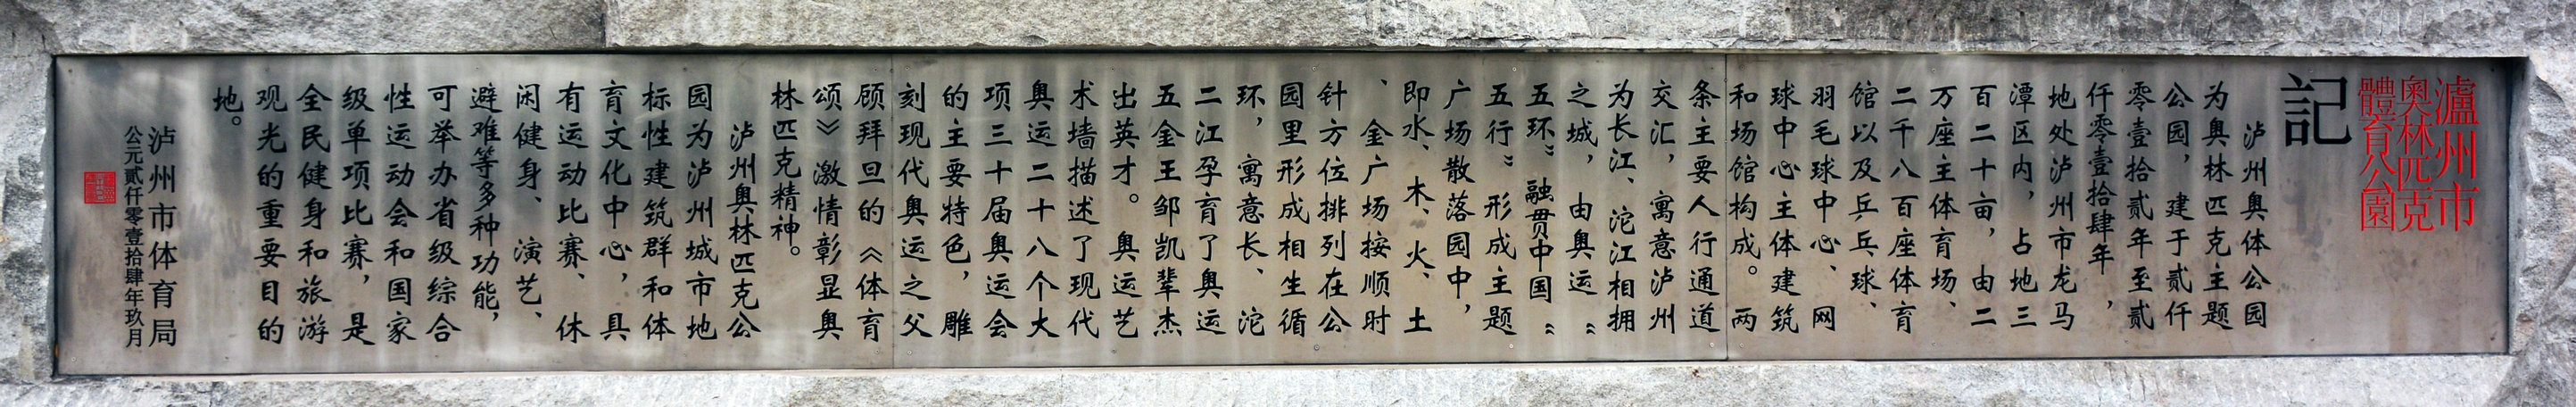 瀘州市
奧林匹克
體育公園
記
泸州奥体公园
为奥林匹克主题
公园，建于贰仟
零壹拾贰年至贰
仟零壹拾肆年，
地处泸州市龙马
潭区内，占地三
百二十亩，由二
万座主体育场、
二千八百座体育
馆以及乒乓球、
羽毛球中心、网
球中心主体建筑
和场馆构成。两
条主要人行通道
交汇，寓意泸州
为长江、沱江相拥
之城，由奥运“
五环”融贯中国“
五行”形成主题
广场散落园中，
即水、木、火、土
、金广场按顺时
针方位排列在公
园里形成相生循
环，寓意长、沱
二江孕育了奥运
五金王邹凯辈杰
出英才。奥运艺
术墙描述了现代
奥运二十八个大
项三十届奥运会
的主要特色，雕
刻现代奥运之父
顾拜旦的《体育
颂》激情彰显奥
林匹克精神。
泸州奥林匹克公
园为泸州城市地
标性建筑群和体
育文化中心，具
有运动比赛、休
闲健身、演艺、
避难等多种功能，
可举办省级综合
性运动会和国家
级单项比赛，是
全民健身和旅游
观光的重要目的
地。
泸州市体育局
公元贰仟零壹拾肆年玖月